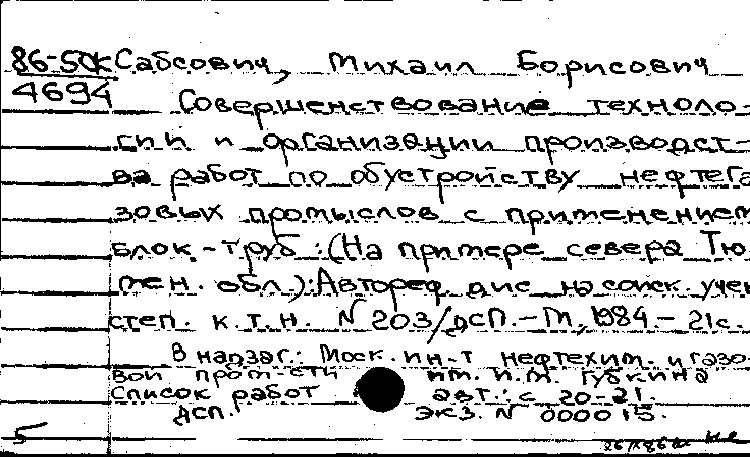 86-5дк Сабсович, Михаил Борисович
4694 Совершенствование техноло-
гии и организации производст-
ва работ по обустройству нефтега
зовых промыслов с применением
блок-труб :(На примере севера Тю
мен. обл.):Автореф. дис. на соиск. учен
степ. к.т.н. N 203/дсп.-М., 1984.-21с.
В надзаг.: Моск. ин-т нефтехим. и газо
вой пром-сти им. И.М. Губкина
Список работ авт.: с 20-21.
ДСП. Экз. N 000015.
5